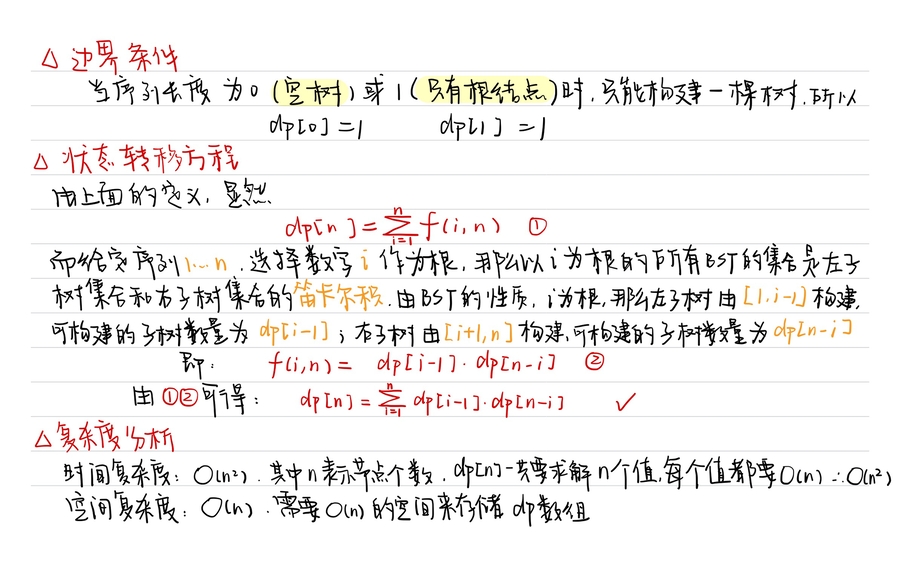 △ 边界条件
当序列长度为0(空树)或1(只有根结点)时,只能构建一棵树,所以
dp[0]=1 dp[1]=1
△ 状态转移方程
由上面的定义,显然
dp[n]=∑ⁿᵢ₌₁f(i,n) ①
而给定序列1…n,选择数字i作为根,那么以i为根的所有BST的集合是左子
树集合和右子树集合的笛卡尔积.由BST的性质,i为根,那么左子树由[1,i-1]构建,
可构建的子树数量为dp[i-1];右子树由[i+1,n]构建,可构建的子树数量为dp[n-i]
即: f(i,n)= dp[i-1]·dp[n-i] ②
由①②可得: dp[n]=∑ⁿᵢ₌₁dp[i-1]·dp[n-i] ✓
△ 复杂度分析
时间复杂度:O(n²).其中n表示节点个数,dp[n]一共要求解n个值,每个值都要O(n)∴O(n²)
空间复杂度:O(n).需要O(n)的空间来存储dp数组